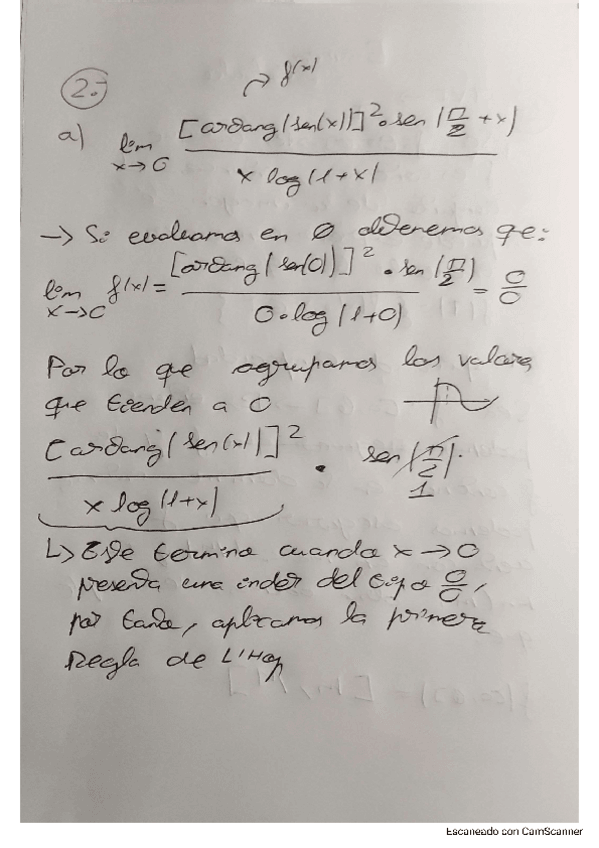 2.-
→ f(x)
a) lim x→0 [arctang(sen(x))]² • sen(π/2 + x) / x log(1+x)
→ Si evaluamos en 0 obtenemos que:
lim x→0 f(x) = [arctang(sen(0))]² • sen(π/2) / 0 • log(1+0) = 0/0
Por lo que agrupamos los valores
que tienden a 0
[arctang(sen(x))]² / x log(1+x) • sen(π/2) 1
↳ Este termino cuando x → 0
presenta una indet del tipo 0/0,
por tanto, aplicamos la primera
Regla de L'Hop
Escaneado con CamScanner